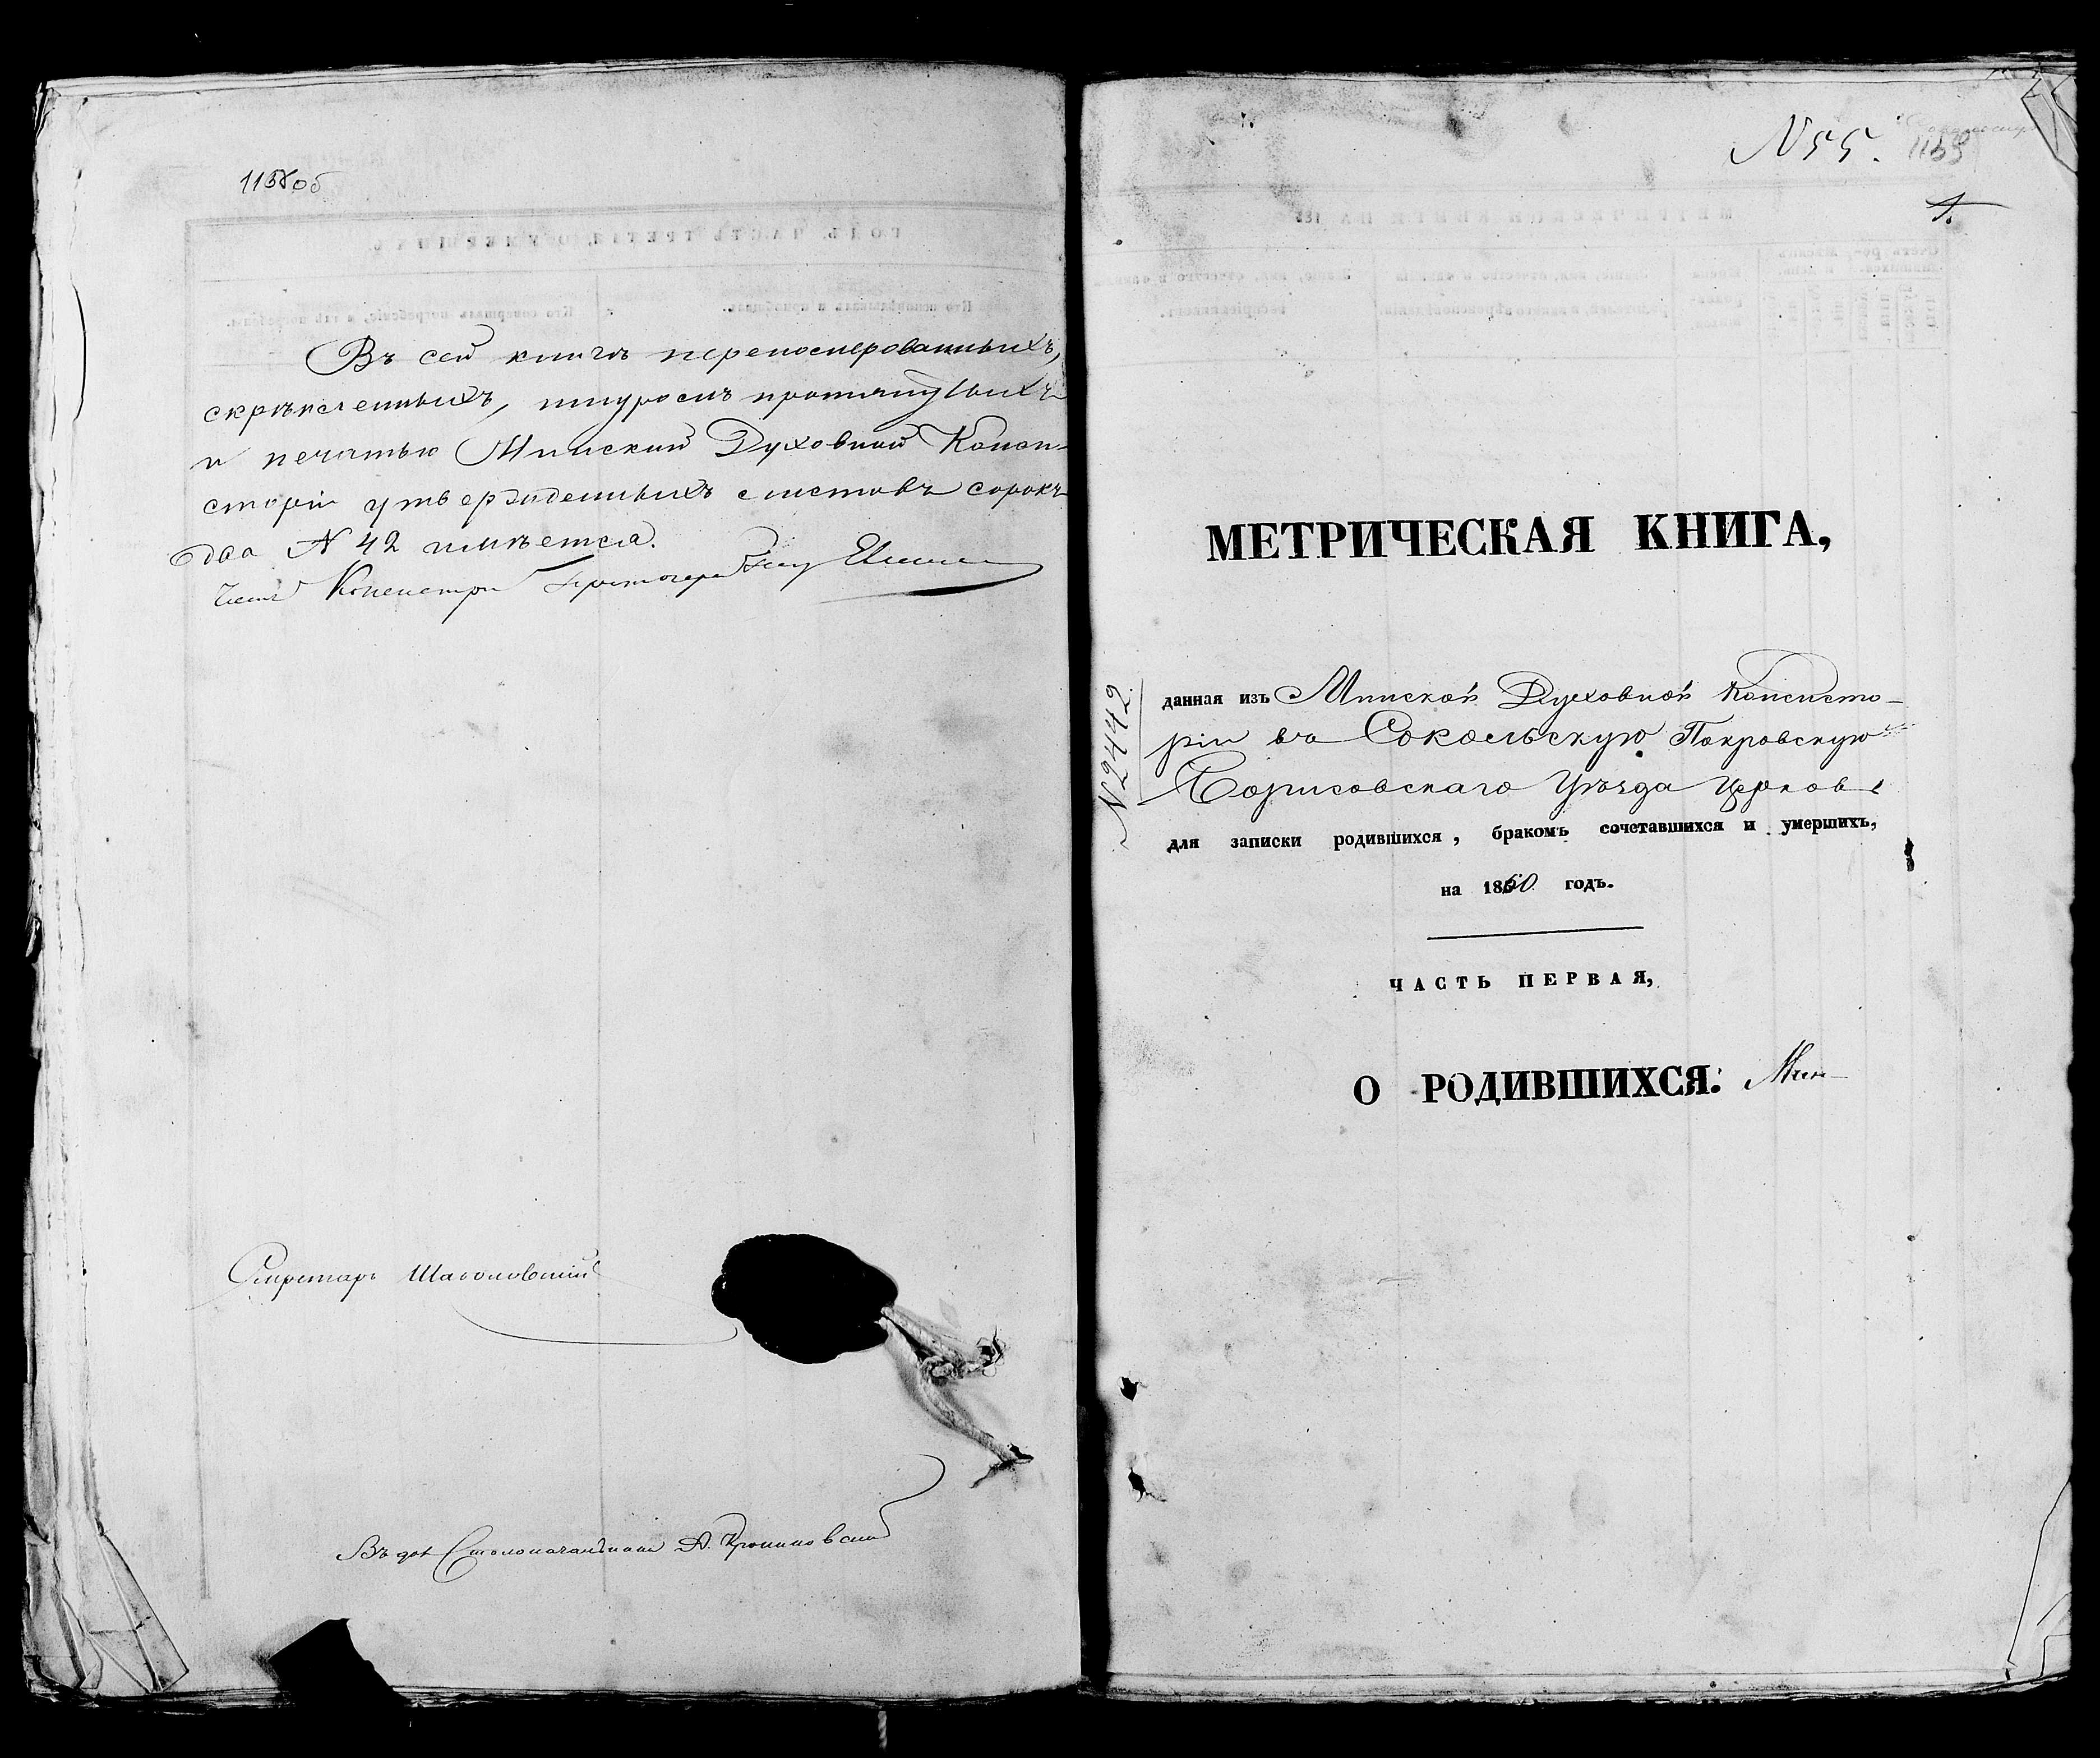 1158 об
Въ сей книгѣ перепомерованныхъ,
скрѣпленныхъ, шнуромъ протянутыхъ
и печатью Минской Духовной Конси-
сторіи утвержденныхъ листовъ сорокъ
два № 42 имѣется.
Членъ Консисторіи Протоіерей
Секретарь
Столоначальника А.
№ 55. 1159
1.
МЕТРИЧЕСКАЯ КНИГА,
№ 2442
данная изъ Минской Духовной Консисто-
ріи въ Сокольскую Покровскую
Борисовскаго Уѣзда церковь
для записки родившихся, бракомъ сочетавшихся и умершихъ,
на 1860 годъ.
ЧАСТЬ ПЕРВАЯ,
О РОДИВШИХСЯ.